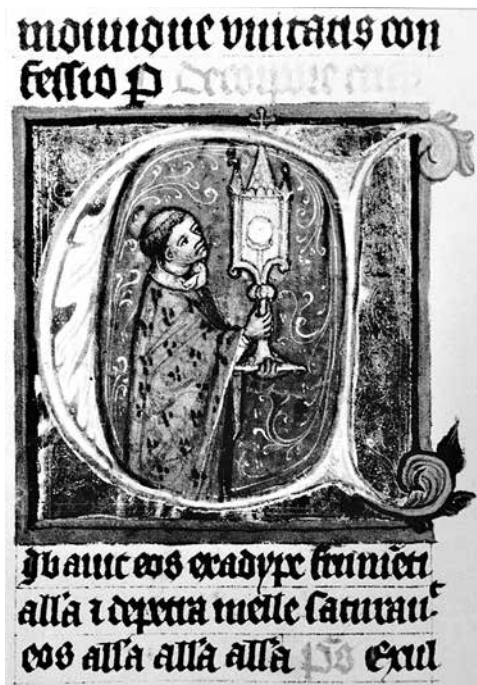 indiuidue vnitatis con
fessio p̄ De corpore
C
Ibauit eos ex adype frumēti
alla ⁊ de petra melle saturauᵗ
eos alla alla alla ps̄ Exul